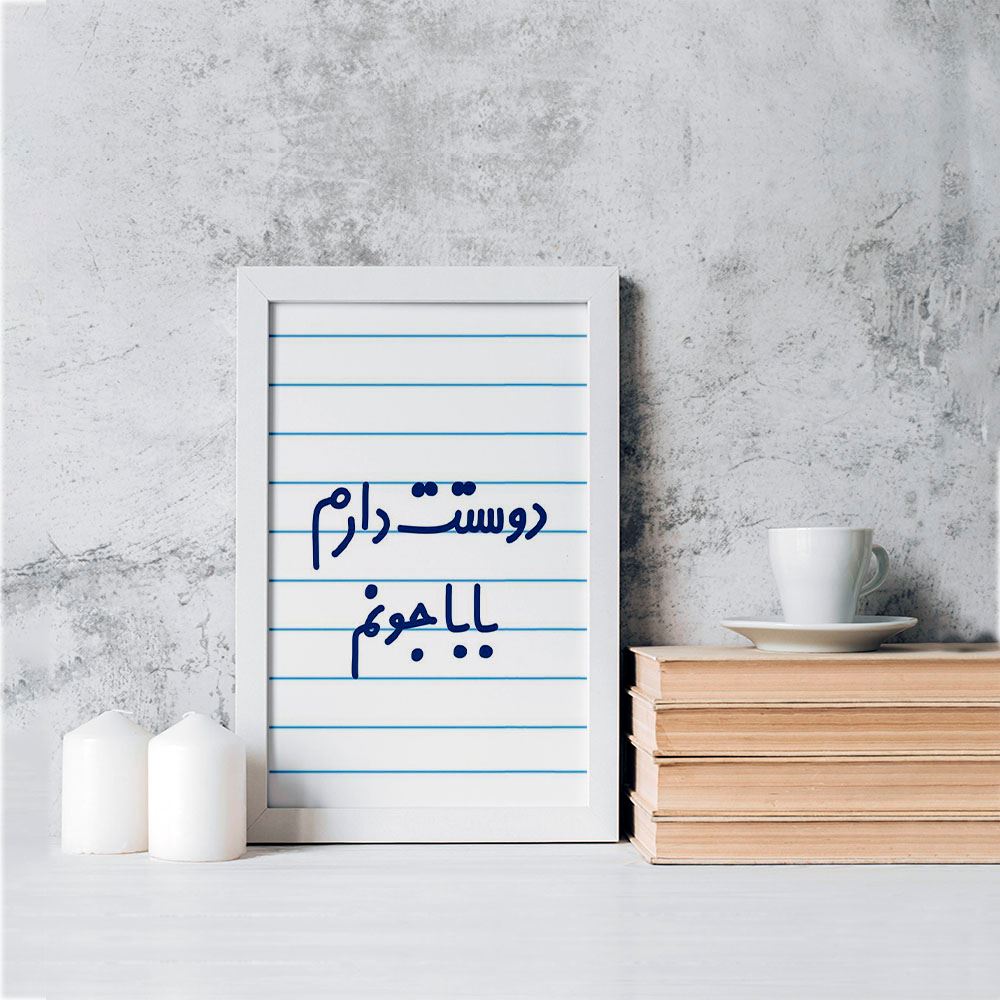 دوستت دارم
بابا جونم